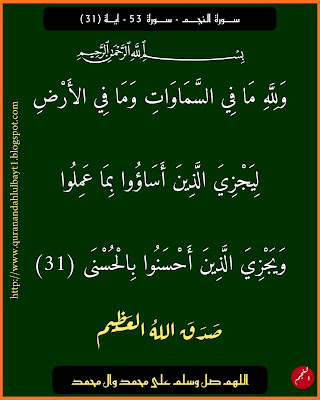 سورة النجم - سورة 53 - اية (31)
بِسْمِ اللَّهِ الرَّحْمَنِ الرَّحِيمِ
وَلِلَّهِ مَا فِي السَّمَاوَاتِ وَمَا فِي الأَرْضِ
لِيَجْزِيَ الَّذِينَ أَسَاؤُوا بِمَا عَمِلُوا
وَيَجْزِيَ الَّذِينَ أَحْسَنُوا بِالْحُسْنَى (31)
صَدَقَ اللهُ العَظِيم
اللهم صل وسلم على محمد وال محمد
النجم
http://www.quranandahlulbayt1.blogspot.com